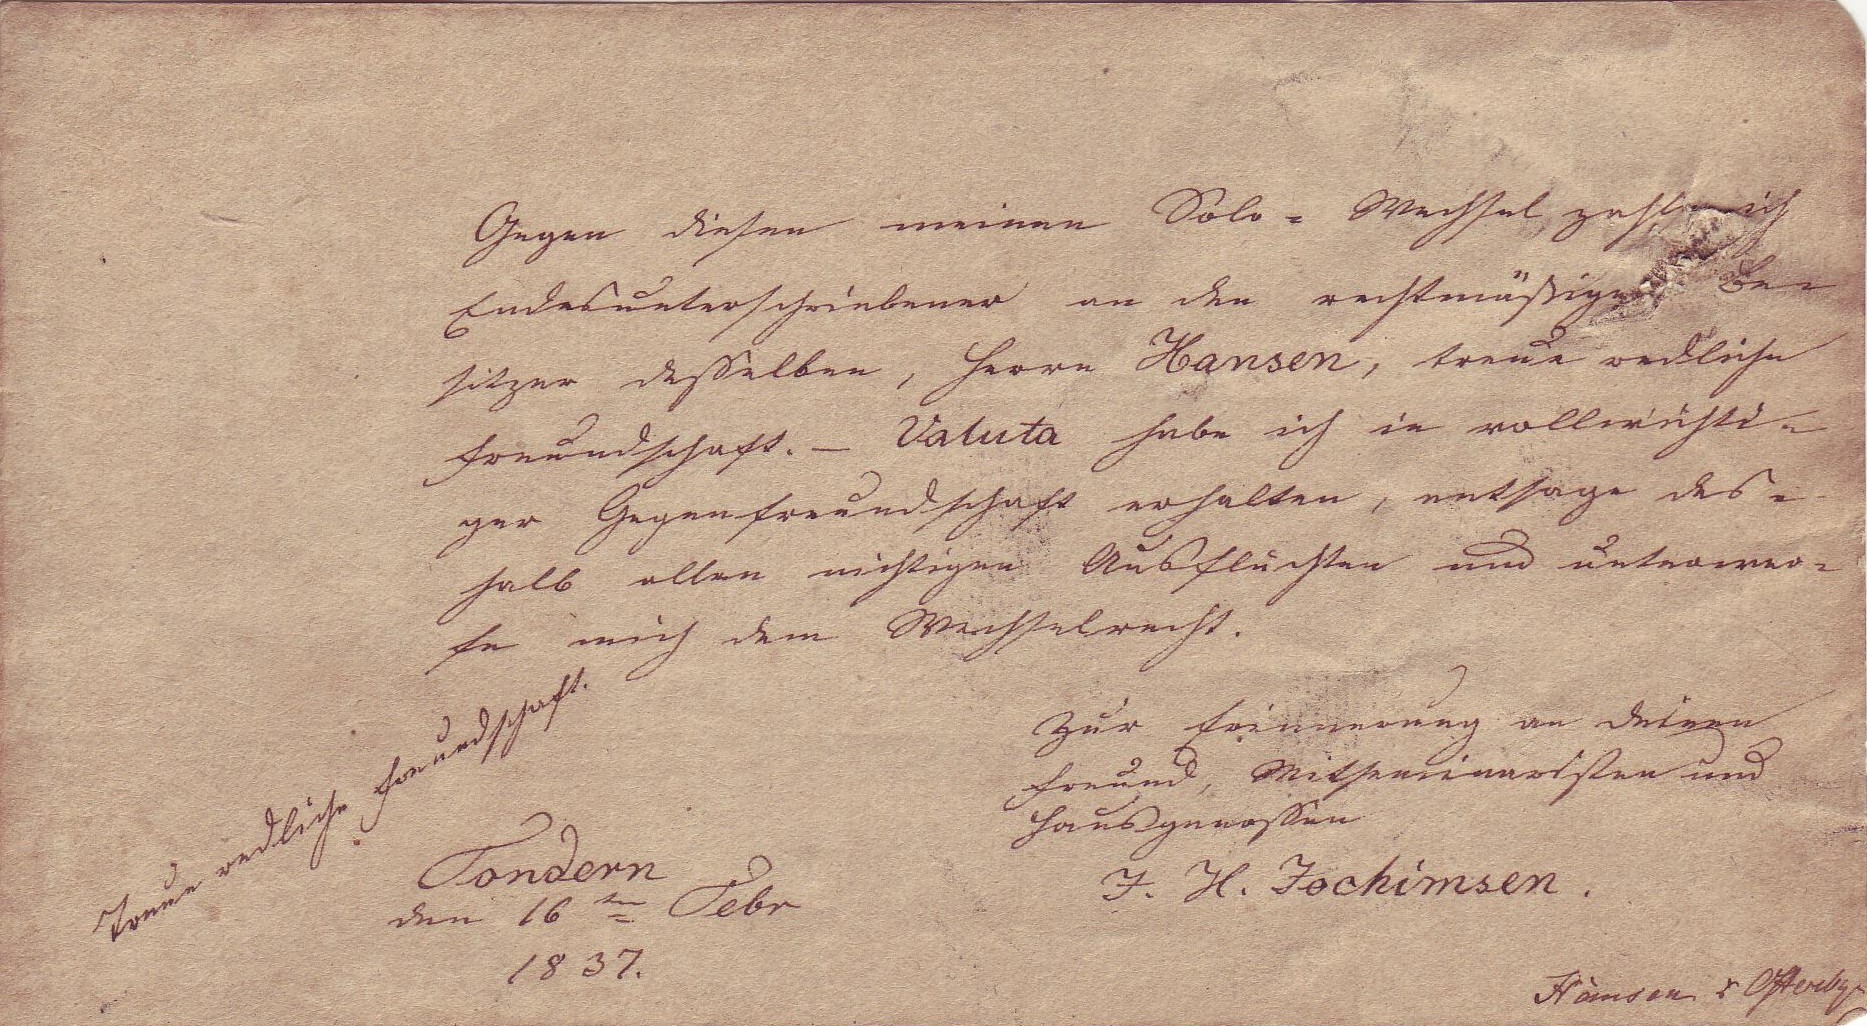 Gegen diesen meinen Solo-Wechsel zahle ich
Endesunterschriebener an den rechtmäßigen Be-
sitzer desselben, Herrn Hansen, treue redliche
Freundschaft. – Valuta habe ich in vollwichti-
ger Gegenfreundschaft erhalten, entsage des-
halb allen nichtigen Ausflüchten und unterwer-
fe mich dem Wechselrecht.
Treue redliche Freundschaft.
Zur Erinnerung an deinen
Freund, Mitseminaristen und
Hausgenossen
J. H. Jochimsen.
Tondern
den 16ten Febr
1837.
Hansen